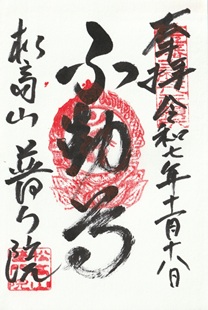 奉拝 令和七年十一月十八日
不動尊
松高山 普門院